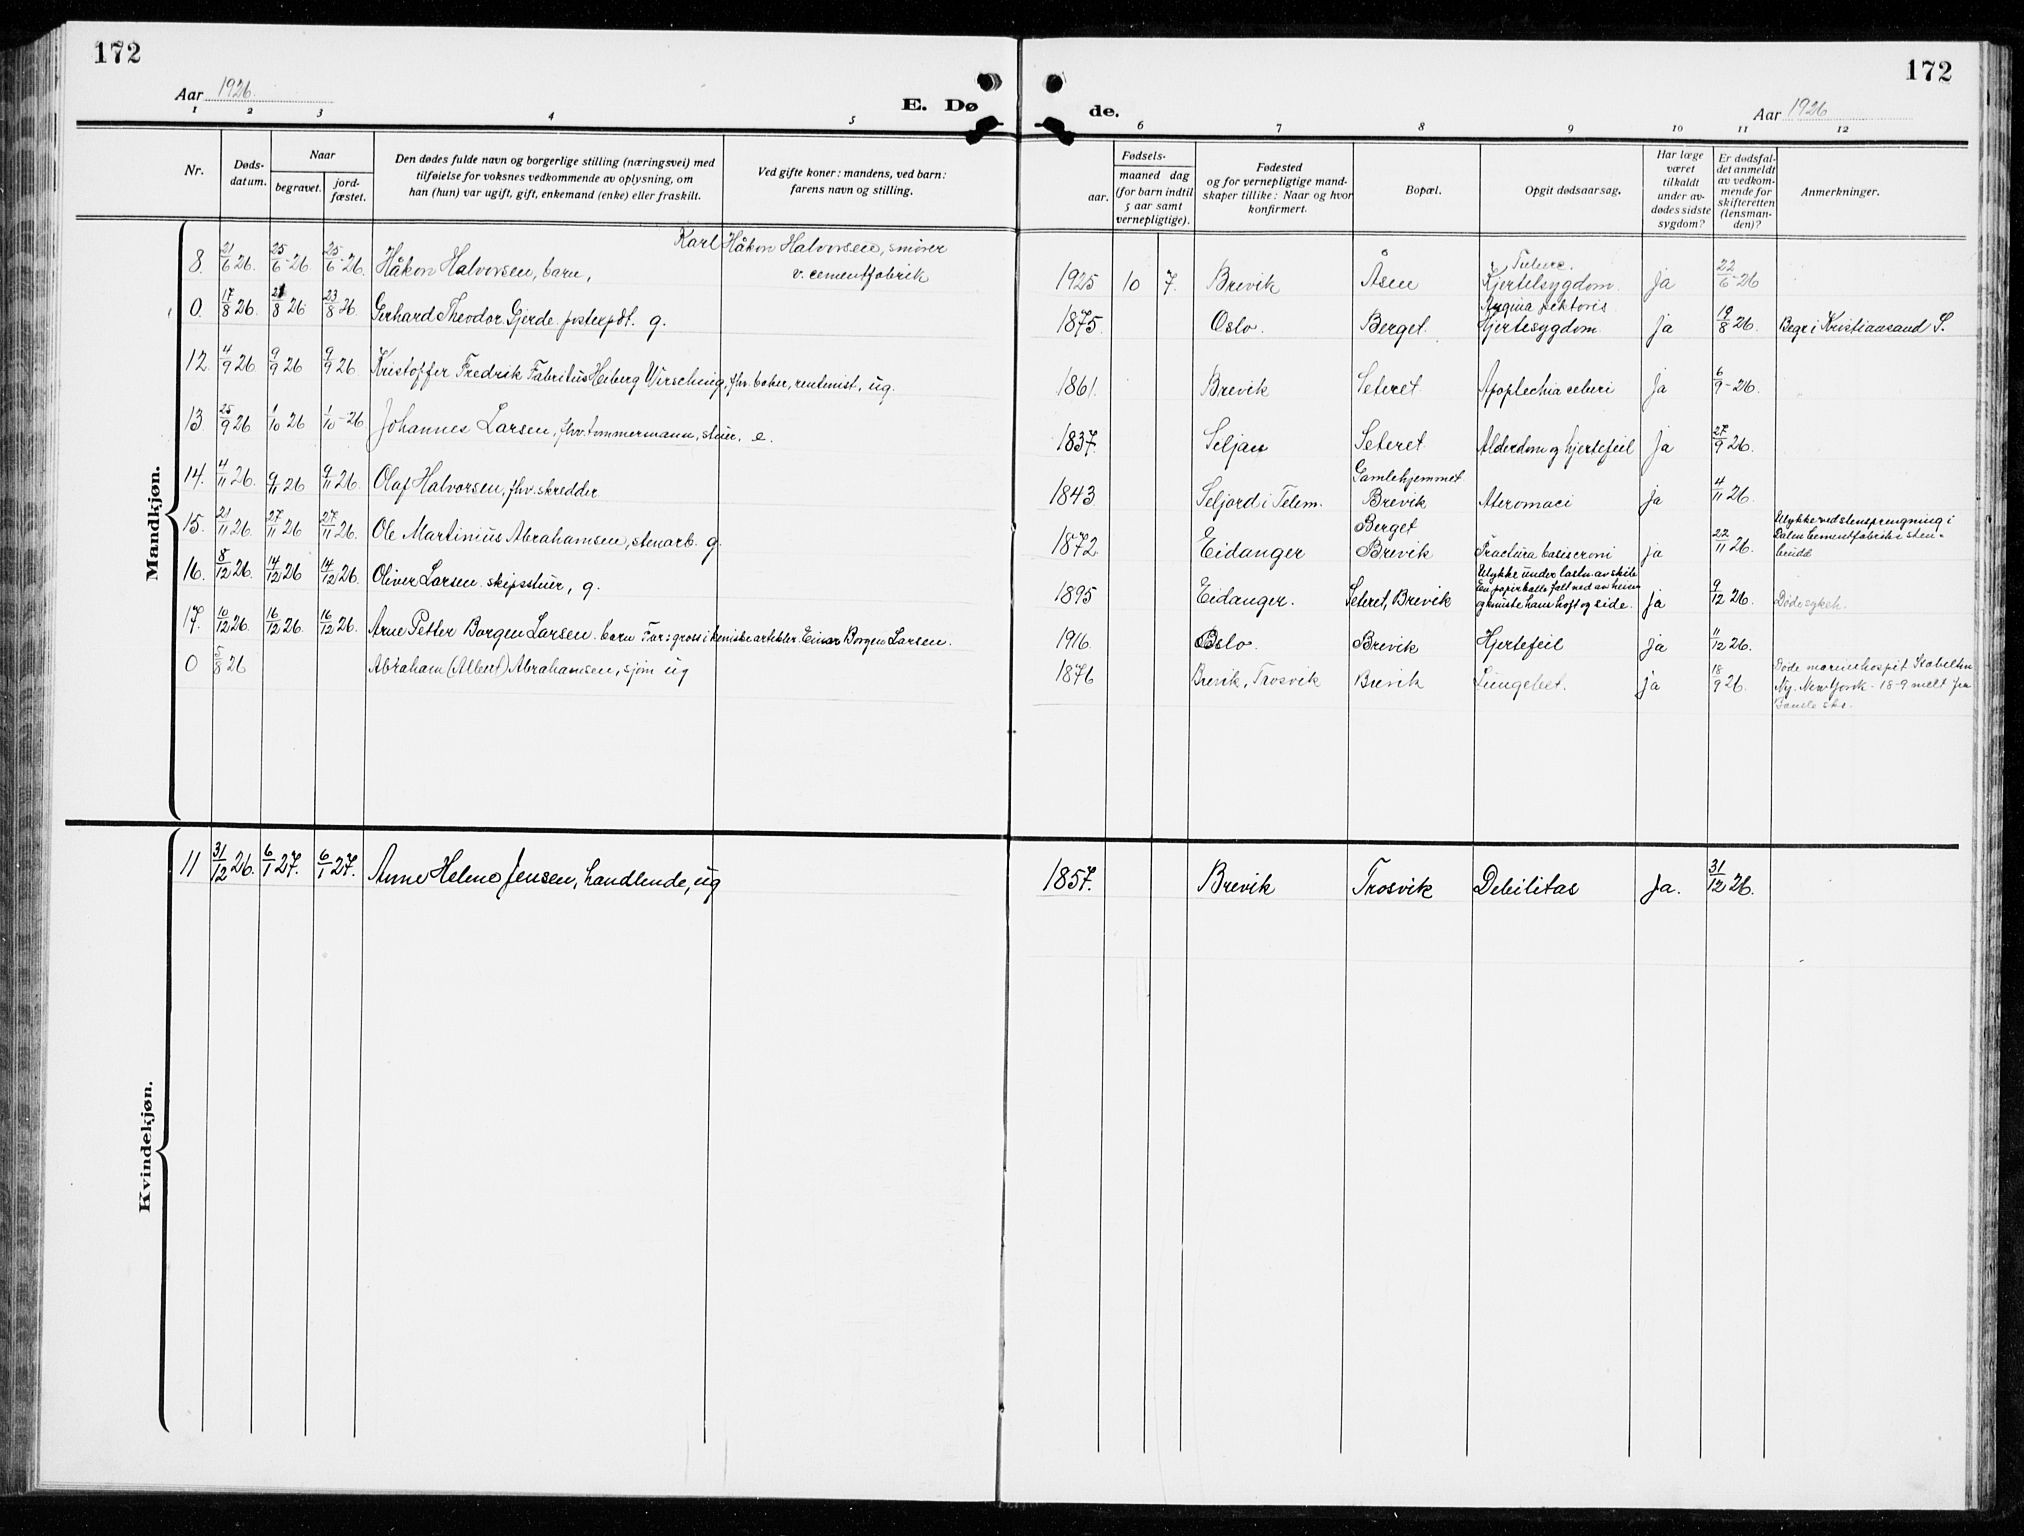 172
172
Aar 1926.
E. Dø
de.
Aar 1926
1 2 3 4 5 6 7 8 9 10 11 12
Nr.
Døds-
datum.
Naar
begravet.
jord-
fæstet.
Den dødes fulde navn og borgerlige stilling (næringsvei) med
tilføielse for voksnes vedkommende av oplysning, om
han (hun) var ugift, gift, enkemand (enke) eller fraskilt.
Ved gifte koner: mandens, ved barn:
farens navn og stilling.
Fødsels-
aar.
maaned dag
(for barn indtil
5 aar samt
vernepligtige).
Fødested
og for vernepligtige mand-
skaper tillike: Naar og hvor
konfirmert.
Bopæl.
Opgit dødsaarsag.
Har læge
været
tilkaldt
under av-
dødes sidste
sygdom?
Er dødsfal-
det anmeldt
av vedkom-
mende for
skifteretten
(lensman-
den)?
Anmerkninger.
Mandkjøn.
Karl Håkon Halvorsen, smører
v. cementfabrik
8. 21/6 26. 25/6-26 25/6-26. Håkon Halvorsen, barn, 1925 10 7. Brevik Åsen Kjertelsygdom. ja 22/6-26
0. 17/8 26. 21/8 26 23/8 26. Gerhard Theodor Gjerde. postexpdt. g. 1875. Oslo. Berget. Angina pektoris
Hjertesygdom. ja 19/8 26. Begr i Kristiansand S.
12 4/9 26 9/9 26 9/9 26 Kristoffer Fredrik Fabritus Heiberg Wirsching, fhv. baker, rentenist, ug. 1861. Brevik Seteret. Apoplechia ceberi ja 6/9-26.
13 25/9 26 1/10 26 1/10-26 Johannes Larsen, fhv. tømmermann, stuer, e. 1837. Seljan Seteret Alderdom og hjertefeil ja 27/9 26.
14. 4/11 26. 9/11 26 9/11 26. Olaf Halvorsen, fhv. skredder 1843 Seljord i Telem. Gamlehjemmet
Brevik Ateromaci ja 4/11 26.
15. 21/11 26. 27/11 26 27/11 26. Ole Martinius Abrahamsen, stenarb. g. 1872 Eidanger Berget
Brevik Fractura basis croni ja 22/11 26. Ulykke ved stensprengning i
Dalen Cementfabrik i sten-
brudd
16. 8/12 26. 14/12 26 14/12 26. Oliver Larsen. skipsstuer, g. 1895 Eidanger. Seteret, Brevik Ulykke under lastn. av skib
En papirballe falt ned av heisen
og knuste hans hoft og side. ja 9/12 26. Døde sykeh.
17. 10/12 26. 16/12 26. 16/12 26. Arne Petter Borgen Larsen. barn Far: gross i kemiske artikler. Einar Borgen Larsen. 1916. Oslo. Brevik Hjertefeil ja 11/12 26.
0 5/8 26 Abraham (Albert) Abrahamsen, sjøm ug 1876 Brevik, Trosvik Brevik Lungebet. ja 18/9 26. Døde marinehospit
Ny. New York - 18-9 melt fra
Bamle skr.
Kvindekjøn.
11 31/12 26. 6/1 27. 6/1 27. Anne Helene Jensen, handlende, ug 1857. Brevik Trosvik Debilitas ja. 31/12 26.